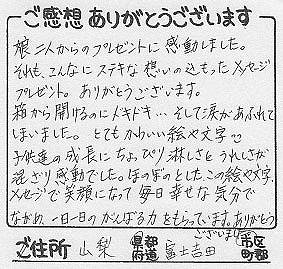 ご感想ありがとうございます
娘二人からのプレゼントに感動しました。
それも、こんなにステキな想いの込もったメッセージ
プレゼント。ありがとうございます。
箱から開けるのにドキドキ…そして涙があふれて
しまいました。とてもかわいい絵や文字
子供達の成長にちょっぴり淋しさとうれしさが
混ざり感動でした。ほのぼのとした、この絵や文字、
メッセージで笑顔になって毎日幸せな気分で
ながめ、一日一日のがんばる力をもらっています。ありがとう
ございました
ご住所 山梨 都道府県 富士吉田 市区町郡